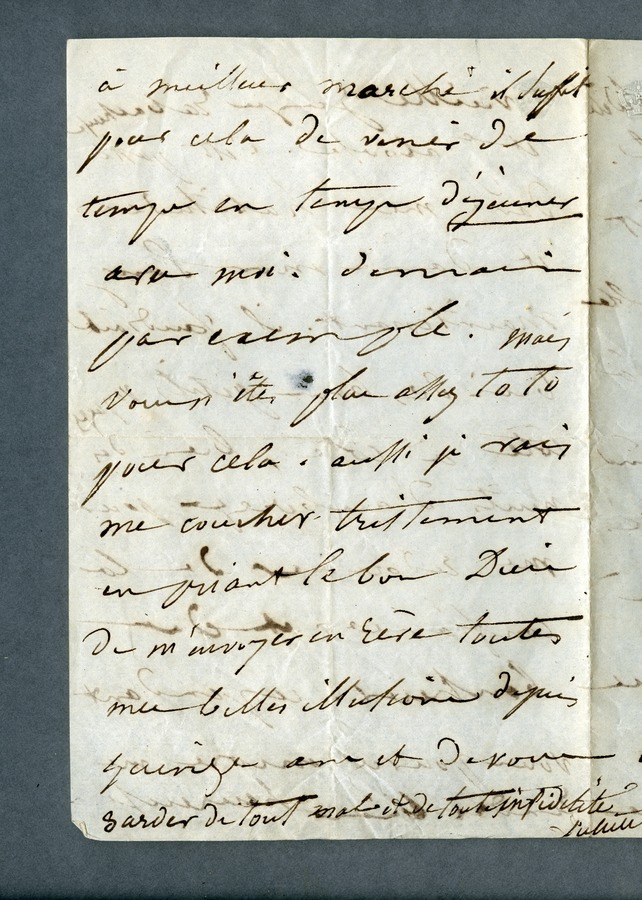 à meilleur marché il suffit
pour cela de venir de
temps en temps déjeuner
avec moi. demain
par exemple. mais
vous n'êtes plus assez Toto
pour cela. aussi je vais
me coucher tristement
en priant le bon Dieu
de m'envoyer en rêve toutes
mes belles illusions depuis
quinze ans et de vous
garder de tout mal et de toute infidélité
Juliette